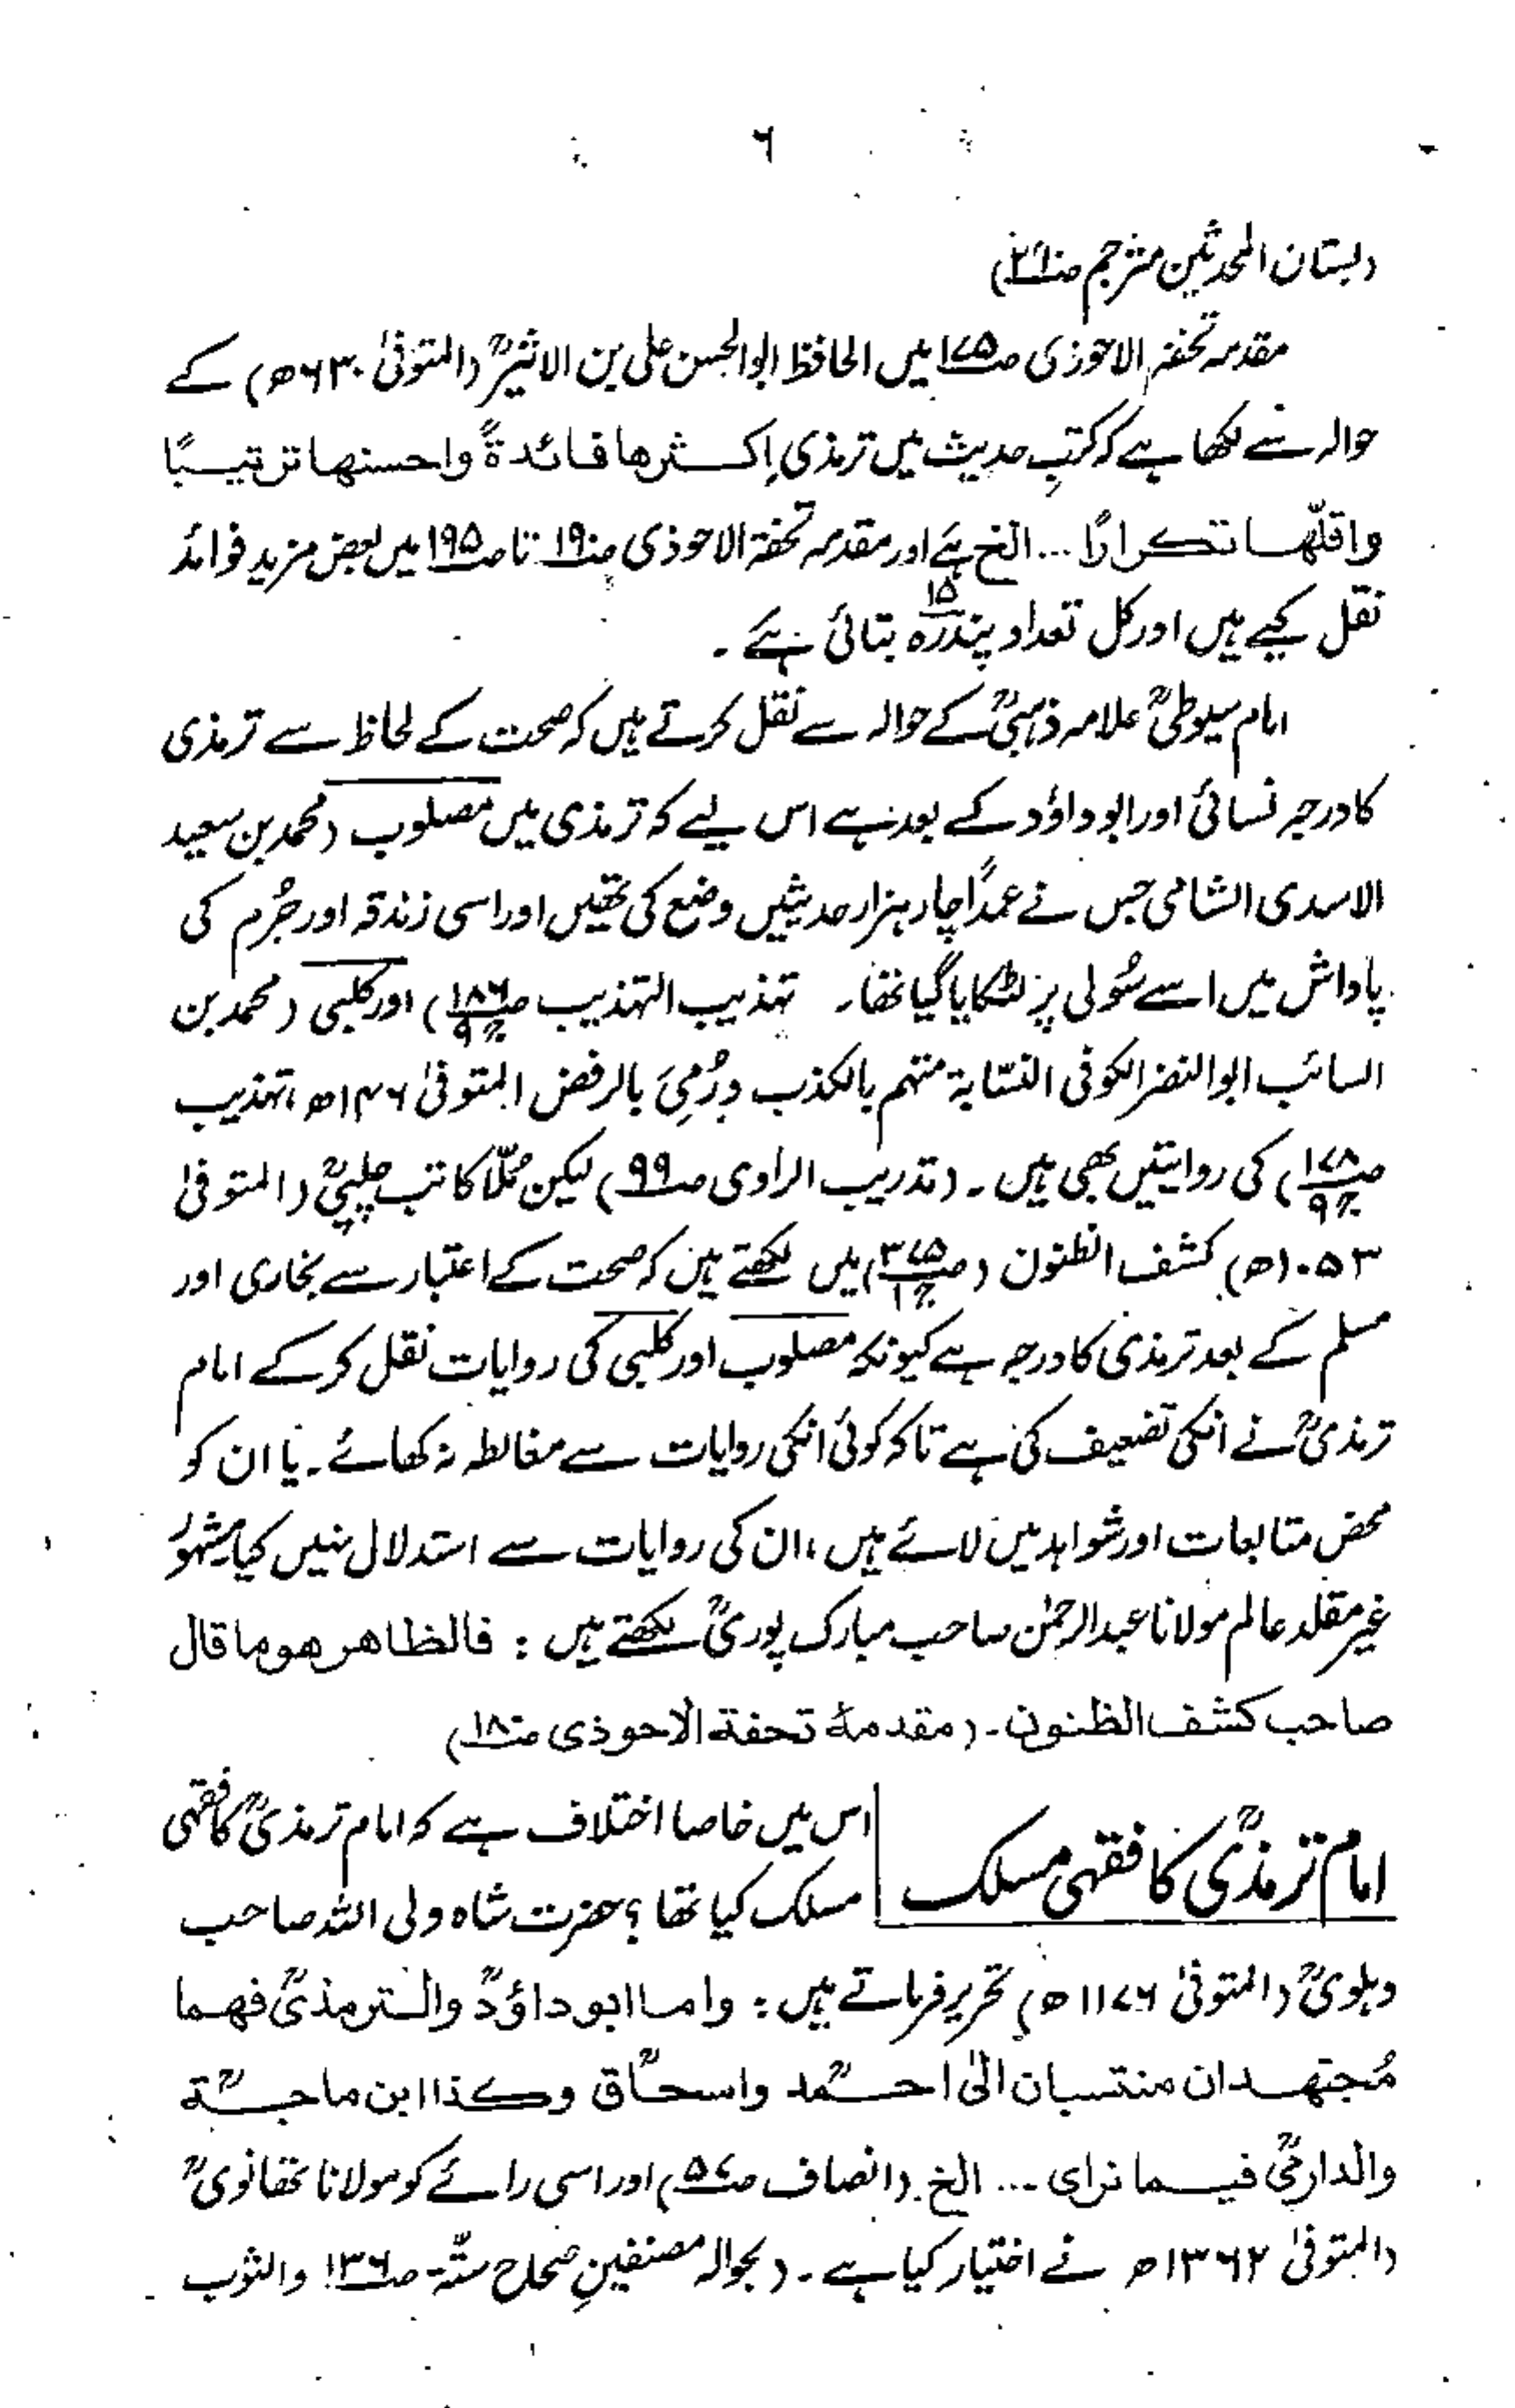 ۶
(بستان المحدثین مترجم ص)
مقدمہ تحفۃ الاحوذی ص۱۷۵ میں الحافظ ابوالحسن علی بن الاثیرؒ (المتوفیٰ ۶۳۰ھ) کے
حوالہ سے لکھا ہے کہ کتبِ حدیث میں ترمذی اکثرھا فائدۃً واحسنھا ترتیبًا
واقلّھا تکرارًا ... الخ ہے اور مقدمہ تحفۃ الاحوذی ص۱۹۰ تا ص۱۹۵ میں بعض مزید فوائد
نقل کیے ہیں اور کل تعداد پندرہ ۱۵ بتائی ہے ۔
امام سیوطیؒ علامہ ذہبیؒ کے حوالہ سے نقل کرتے ہیں کہ صحت کے لحاظ سے ترمذی
کا درجہ نسائی اور ابو داؤد کے بعد ہے اس لیے کہ ترمذی میں مصلوب (محمد بن سعید
الاسدی الشامی جس نے عمداً چار ہزار حدیثیں وضع کی تھیں اور اسی زندقہ اور جُرم کی
پاداش میں اسے سُولی پر لٹکایا گیا تھا۔ تہذیب التہذیب ص۱۸۶ ج۹) اور کلبی (محمد بن
السائب ابوالنضر الکوفی النسّابۃ متہم بالکذب ورُمِیَ بالرفض المتوفیٰ ۱۴۶ھ، تہذیب
ص۱۷۸ ج۹) کی روایتیں بھی ہیں ۔ (تدریب الراوی ص۹۹) لیکن مُلّا کاتب چلپیؒ (المتوفیٰ
۱۰۵۳ھ) کشف الظنون (ص۳۷۵ ج۱) میں لکھتے ہیں کہ صحت کے اعتبار سے بخاری اور
مسلم کے بعد ترمذی کا درجہ ہے کیونکہ مصلوب اور کلبی کی روایات نقل کر کے امام
ترمذیؒ نے انکی تضعیف کی ہے تاکہ کوئی انکی روایات سے مغالطہ نہ کھائے۔ یا ان کو
محض متابعات اور شواہد میں لائے ہیں ، ان کی روایات سے استدلال نہیں کیا۔ مشہور
غیر مقلد عالم مولانا عبدالرحمٰن صاحب مبارک پوریؒ لکھتے ہیں : فالظاھر ھو ما قال
صاحب کشف الظنون۔ (مقدمۃ تحفۃ الاحوذی ص۱۸۰)
امام ترمذیؒ کا فقہی مسلک
اس میں خاصا اختلاف ہے کہ امام ترمذیؒ کا فقہی
مسلک کیا تھا ؟ حضرت شاہ ولی اللہ صاحب
دہلویؒ (المتوفیٰ ۱۱۷۶ھ) تحریر فرماتے ہیں : واما ابو داؤدؒ والترمذیؒ فھما
مُجتھدان منتسبان الیٰ احمدؒ واسحاقؒ وکذا ابن ماجۃؒ
والدارمیؒ فیما نرای ... الخ. (انصاف ص) اور اسی رائے کو مولانا تھانویؒ
(المتوفیٰ ۱۳۶۲ھ نے اختیار کیا ہے ۔ (بحوالہ مصنفینِ صحاح ستّہ ص۱۳۶ والثوب